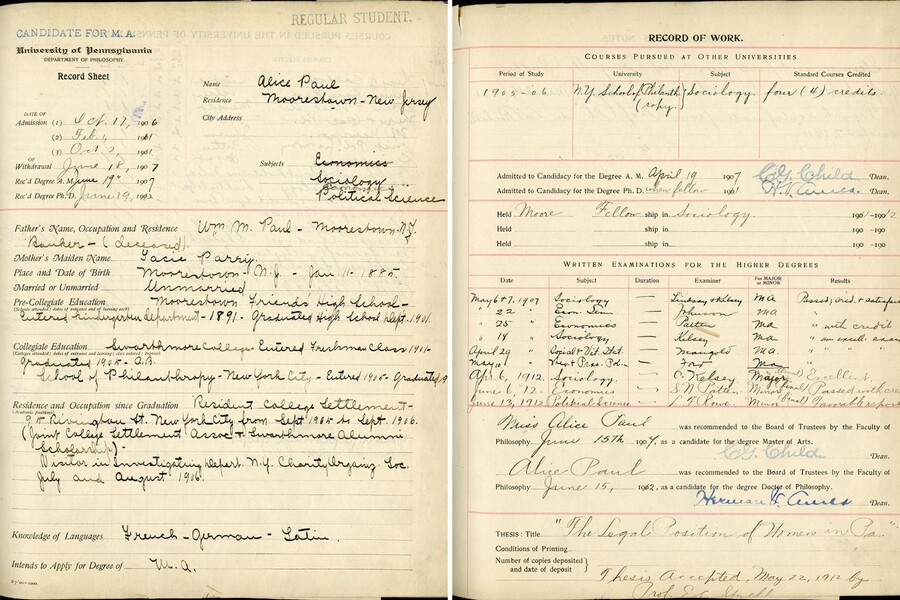 REGULAR STUDENT.
CANDIDATE FOR M.A.
University of Pennsylvania
DEPARTMENT OF PHILOSOPHY
Record Sheet
Name Alice Paul
Residence Moorestown - New Jersey
City Address
DATE OF
Admission (1) Oct. 17, 1906
(2) Feb 1, 1901
(3) Oct 2, 1901
OF
Withdrawal June 18, 1907
Rec'd Degree A. M. June 19th 1907
Rec'd Degree Ph. D. June 19, 1912
Subjects Economics
Sociology
Economics
Political Science
Father's Name, Occupation and Residence Wm M. Paul - Moorestown - N.J.
Banker - (deceased)
Mother's Maiden Name Tacie Parry.
Place and Date of Birth Moorestown - N.J. - Jan. 11 - 1885.
Married or Unmarried Unmarried
Pre-Collegiate Education Moorestown Friends High School -
(Schools attended; dates of entrance and of leaving each)
Entered kindergarten department - 1891. Graduated High School Sept. 1901.
Collegiate Education Swarthmore College - Entered Freshman Class 1901 -
Graduated 1905 - A.B.
School of Philanthropy - New York City - Entered 1905 - Graduated 19
Residence and Occupation since Graduation Resident College Settlement -
95 Rivington St. New York City from Sept 1905 to Sept. 1906.
(Joint College Settlement Assoc + Swarthmore Alumni
Scholarship) -
Visitor in Investigating Depart. N.Y. Charity Organiz. Soc.
July and August 1906.
Knowledge of Languages French - German - Latin.
Intends to Apply for Degree of M.A.
RECORD OF WORK.
COURSES PURSUED AT OTHER UNIVERSITIES
Period of Study University Subject Standard Courses Credited
1905-06 N.Y. School of Philanth(ropy) Sociology. four (4) credits
Admitted to Candidacy for the Degree A. M. April 19 1907 C.G. Child Dean.
Admitted to Candidacy for the Degree Ph. D. when fellow 1901 H.V. Ames. Dean.
Held Moore Fellow ship in Sociology 1901-1912
Held ship in 190 -190
Held ship in 190 -190
WRITTEN EXAMINATIONS FOR THE HIGHER DEGREES
Date Subject Duration Examiner For MAJOR or MINOR Results
May 6+7, 1907 Sociology — Lindsay + Kelsey MA Passed, cred. + satisfac
" 22 " Econ. Sem — Johnson MA "
" 25 " Economics — Patten Ma " with credit
" 18 " Sociology — Kelsey Ma " an excell. exam
April 29 " Social + Vit. Stat. — Mangold Ma. "
May 10 " — Ma "
Apr. 6, 1912. Sociology. — C. Kelsey Major (final) Excellent.
June 6, 12 Economics — S.N. Patten Minor (final) Passed with cred
June 13, 1912 Political Science — L.S. Rowe Minor (final) Favorable report
Miss Alice Paul was recommended to the Board of Trustees by the Faculty of
Philosophy June 15th 1907, as a candidate for the degree Master of Arts.
C.G. Child Dean.
Alice Paul was recommended to the Board of Trustees by the Faculty of
Philosophy June 15, 1912, as a candidate for the degree Doctor of Philosophy.
Herman V. Ames Dean.
THESIS: Title "The Legal Position of Women in Pa."
Conditions of Printing
Number of copies deposited
and date of deposit
Thesis Accepted, May 22, 1912 by
Prof. E.